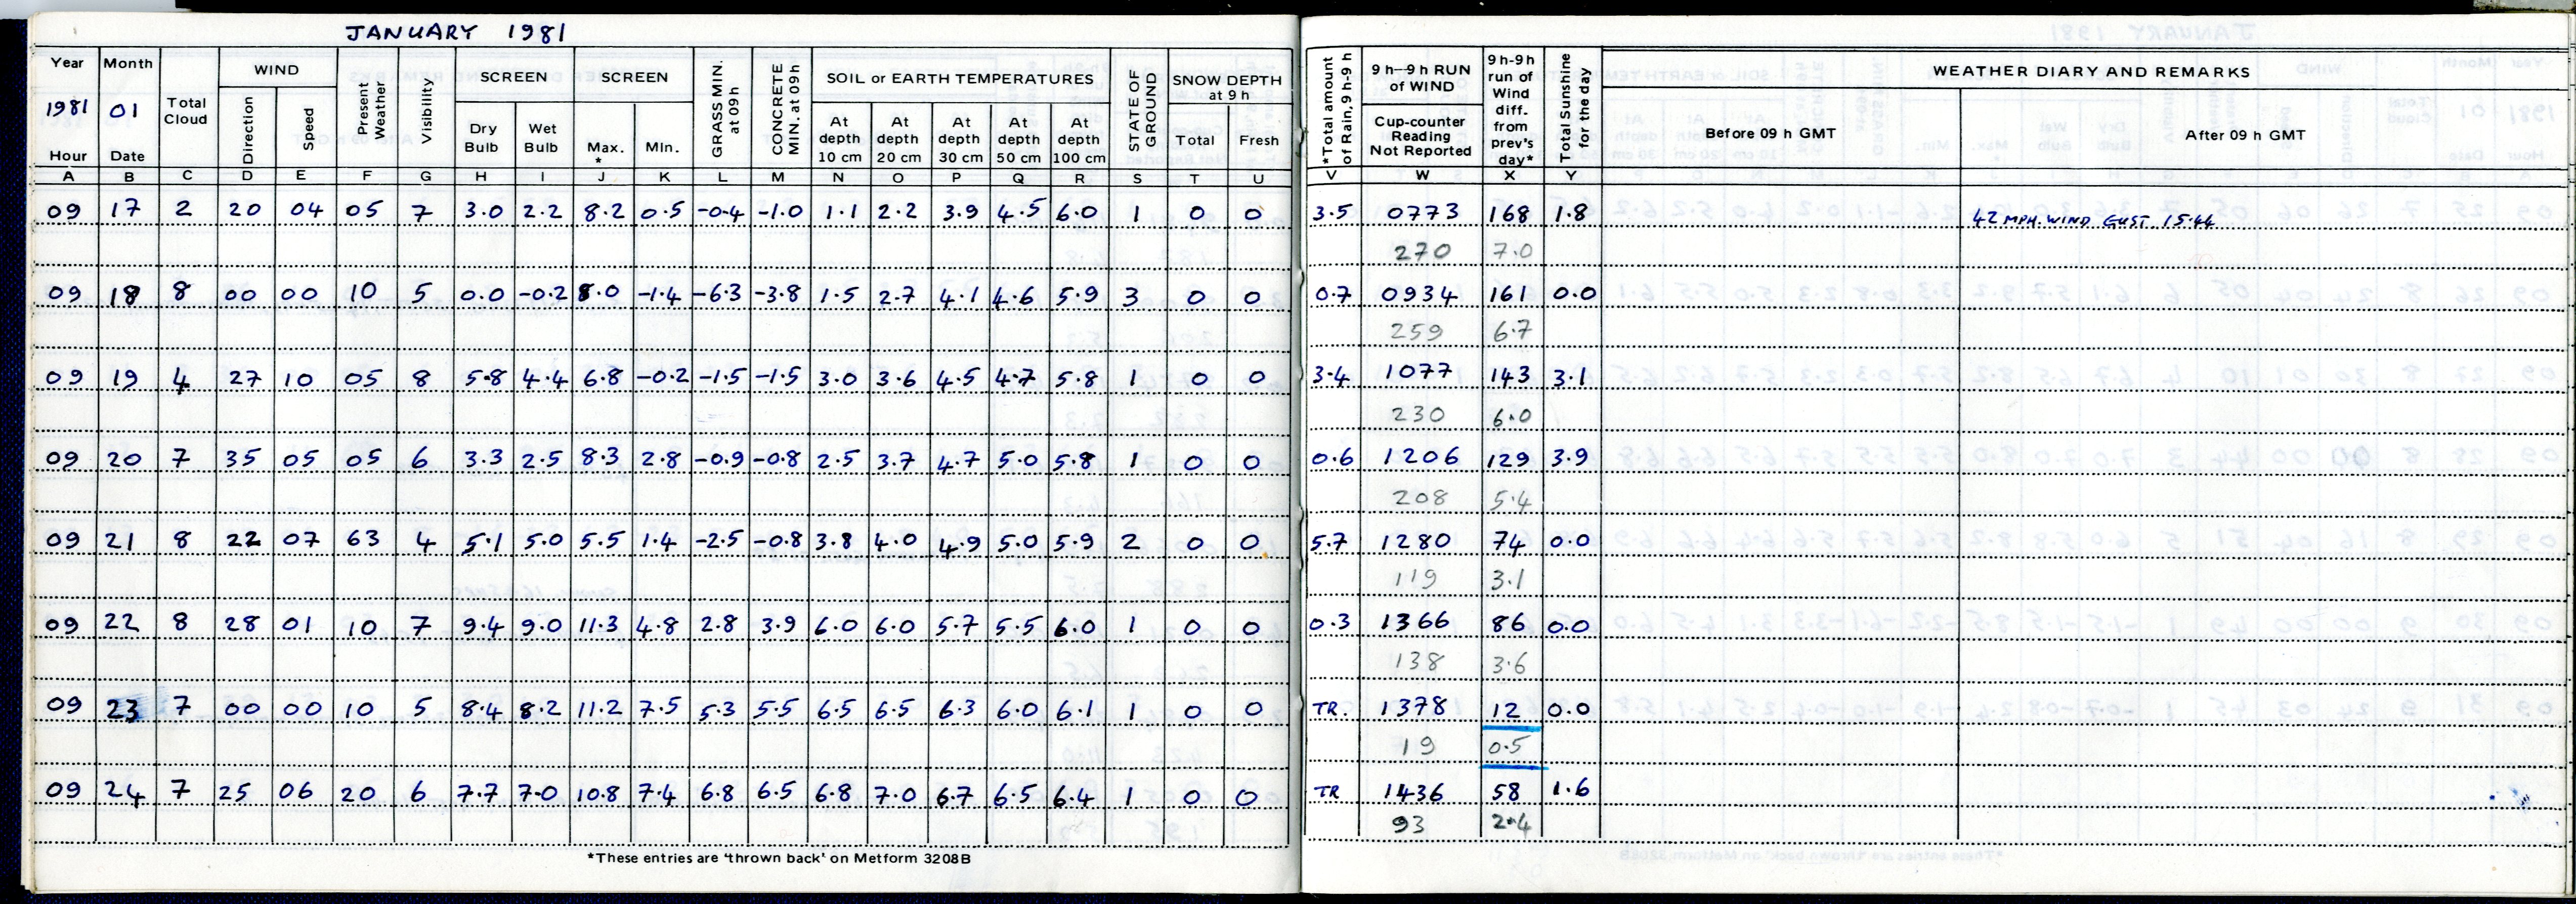 JANUARY 1981
Year Month Total Cloud WIND Present Weather Visibility SCREEN SCREEN GRASS MIN. at 09h CONCRETE MIN. at 09h SOIL or EARTH TEMPERATURES STATE OF GROUND SNOW DEPTH at 9 h *Total amount of Rain, 9 h-9 h 9 h—9 h RUN of WIND 9 h-9h run of Wind diff. from prev's day* Total Sunshine for the day WEATHER DIARY AND REMARKS
1981 01 Direction Speed Dry Bulb Wet Bulb Max. * Min. At depth 10 cm At depth 20 cm At depth 30 cm At depth 50 cm At depth 100 cm Total Fresh Cup-counter Reading Not Reported Before 09 h GMT After 09 h GMT
Hour Date
A B C D E F G H I J K L M N O P Q R S T U V W X Y
09 17 2 20 04 05 7 3.0 2.2 8.2 0.5 -0.4 -1.0 1.1 2.2 3.9 4.5 6.0 1 0 0 3.5 0773 168 1.8 42 MPH. WIND GUST 15.44
270 7.0
09 18 8 00 00 10 5 0.0 -0.2 8.0 -1.4 -6.3 -3.8 1.5 2.7 4.1 4.6 5.9 3 0 0 0.7 0934 161 0.0
259 6.7
09 19 4 27 10 05 8 5.8 4.4 6.8 -0.2 -1.5 -1.5 3.0 3.6 4.5 4.7 5.8 1 0 0 3.4 1077 143 3.1
230 6.0
09 20 7 35 05 05 6 3.3 2.5 8.3 2.8 -0.9 -0.8 2.5 3.7 4.7 5.0 5.8 1 0 0 0.6 1206 129 3.9
208 5.4
09 21 8 22 07 63 4 5.1 5.0 5.5 1.4 -2.5 -0.8 3.8 4.0 4.9 5.0 5.9 2 0 0 5.7 1280 74 0.0
119 3.1
09 22 8 28 01 10 7 9.4 9.0 11.3 4.8 2.8 3.9 6.0 6.0 5.7 5.5 6.0 1 0 0 0.3 1366 86 0.0
138 3.6
09 23 7 00 00 10 5 8.4 8.2 11.2 7.5 5.3 5.5 6.5 6.5 6.3 6.0 6.1 1 0 0 TR. 1378 12 0.0
19 0.5
09 24 7 25 06 20 6 7.7 7.0 10.8 7.4 6.8 6.5 6.8 7.0 6.7 6.5 6.4 1 0 0 TR 1436 58 1.6
93 2.4
*These entries are 'thrown back' on Metform 3208B